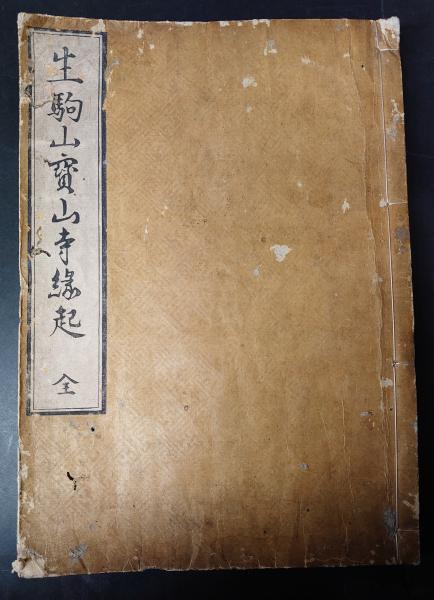 生駒山寳山寺縁起 全